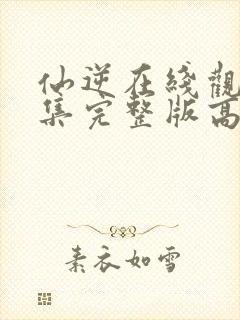 仙逆在綫觀
集完整版高
素衣如雪